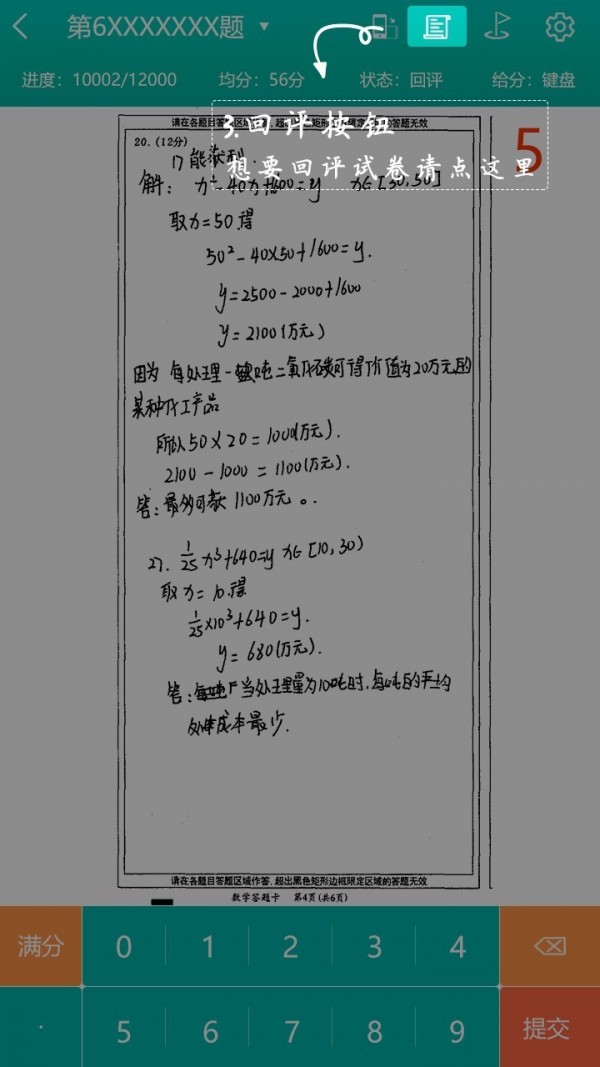 第6XXXXXXX题
进度：10002/12000 均分：56分 状态：回评 给分：键盘
3.回评按钮
想要回评试卷请点这里
5
20.（12分）
1）能获利.
解： x²-40x+1600=y x∈[30,50]
取x=50.得
50²-40×50+1600=y.
y=2500-2000+1600
y=2100(万元)
因为 每处理一吨二氧化碳可得价值为20万元的
某种化工产品
所以50×20=1000(万元).
2100-1000=1100(万元).
答：最多可获1100万元。
27. 1/25x³+640=y x∈[10,30)
取x=10.得
1/25×10³+640=y.
y=680(万元).
答：当处理量为10吨时,每吨的平均
处理成本最少.
请在各题目答题区域作答,超出黑色矩形边框限定区域的答题无效
数学答题卡 第4页(共6页)
满分 0 1 2 3 4
· 5 6 7 8 9 提交